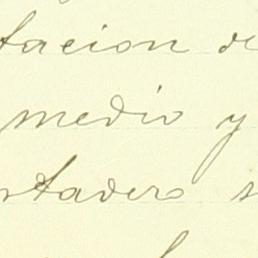 tacion de
medio y
stadero s